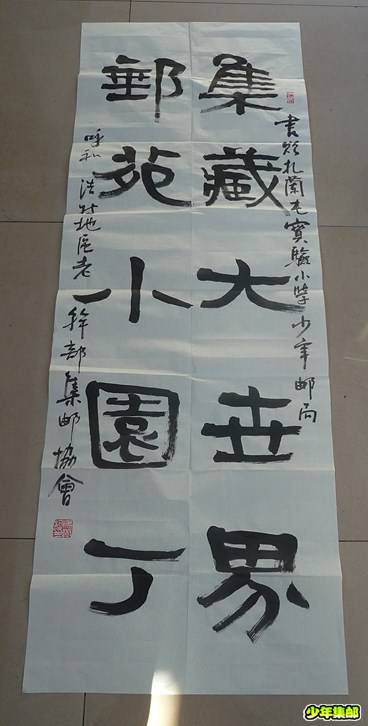 書赠扎蘭屯實驗小學少年邮局
集藏大世界
郵苑小園丁
呼和浩特地区老幹部集邮協會
少年集邮